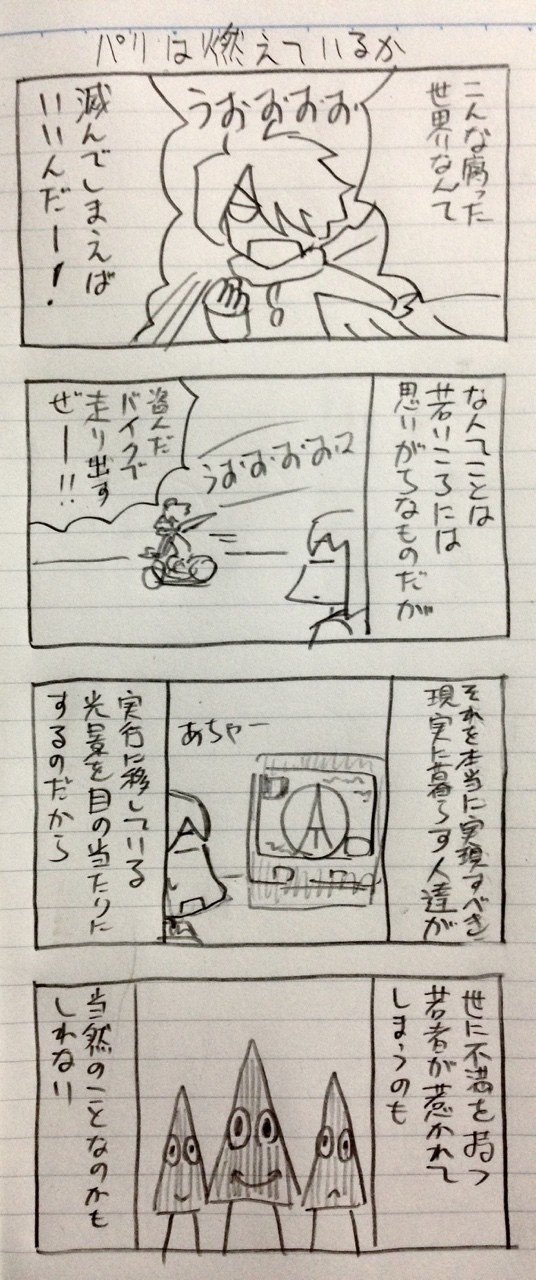 パリは燃えているか
こんな腐った
世界なんて
うおおおお
滅んでしまえば
いいんだー！
なんてことは
若いころには
思いがちなものだが
うおおおおお
盗んだ
バイクで
走り出す
ぜー!!
それを本当に実現すべき
現実に暮らす人達が
あちゃー
実行に移している
光景を目の当たりに
するのだから
世に不満を持つ
若者が惹かれて
しまうのも
当然のことなのかも
しれない